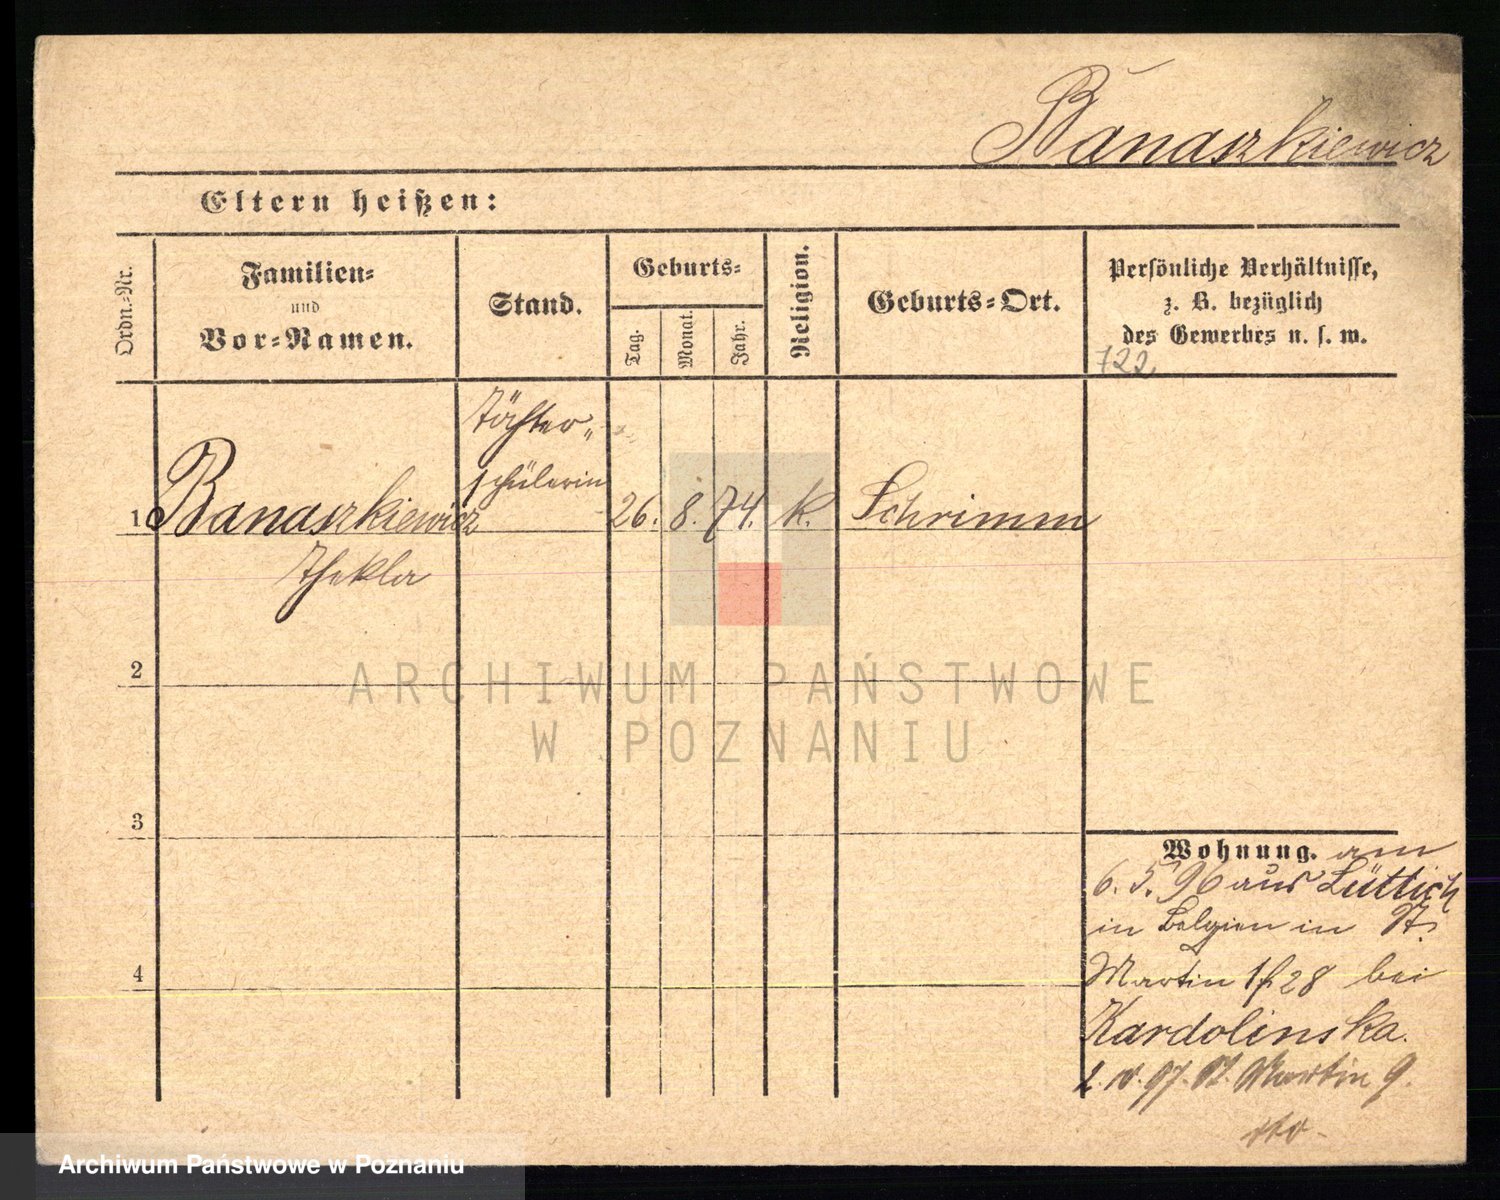 Banaszkiewicz
Eltern heißen:
Ordn.-Nr.
Familien-
und
Vor-Namen.
Stand.
Geburts-
Tag.
Monat.
Jahr.
Religion.
Geburts-Ort.
Persönliche Verhältnisse,
z. B. bezüglich
des Gewerbes u. s. w.
722
Töchter-
schülerin
1 Banaszkiewicz 26. 8. 74. k. Schrimm
Thekla
2
3
4
Wohnung. am
6. 5. 96 aus Lüttich
in Belgien in St.
Martin 28 bei
Kardolinska.
97. St. Martin 9.
ARCHIWUM PAŃSTWOWE
W POZNANIU
Archiwum Państwowe w Poznaniu